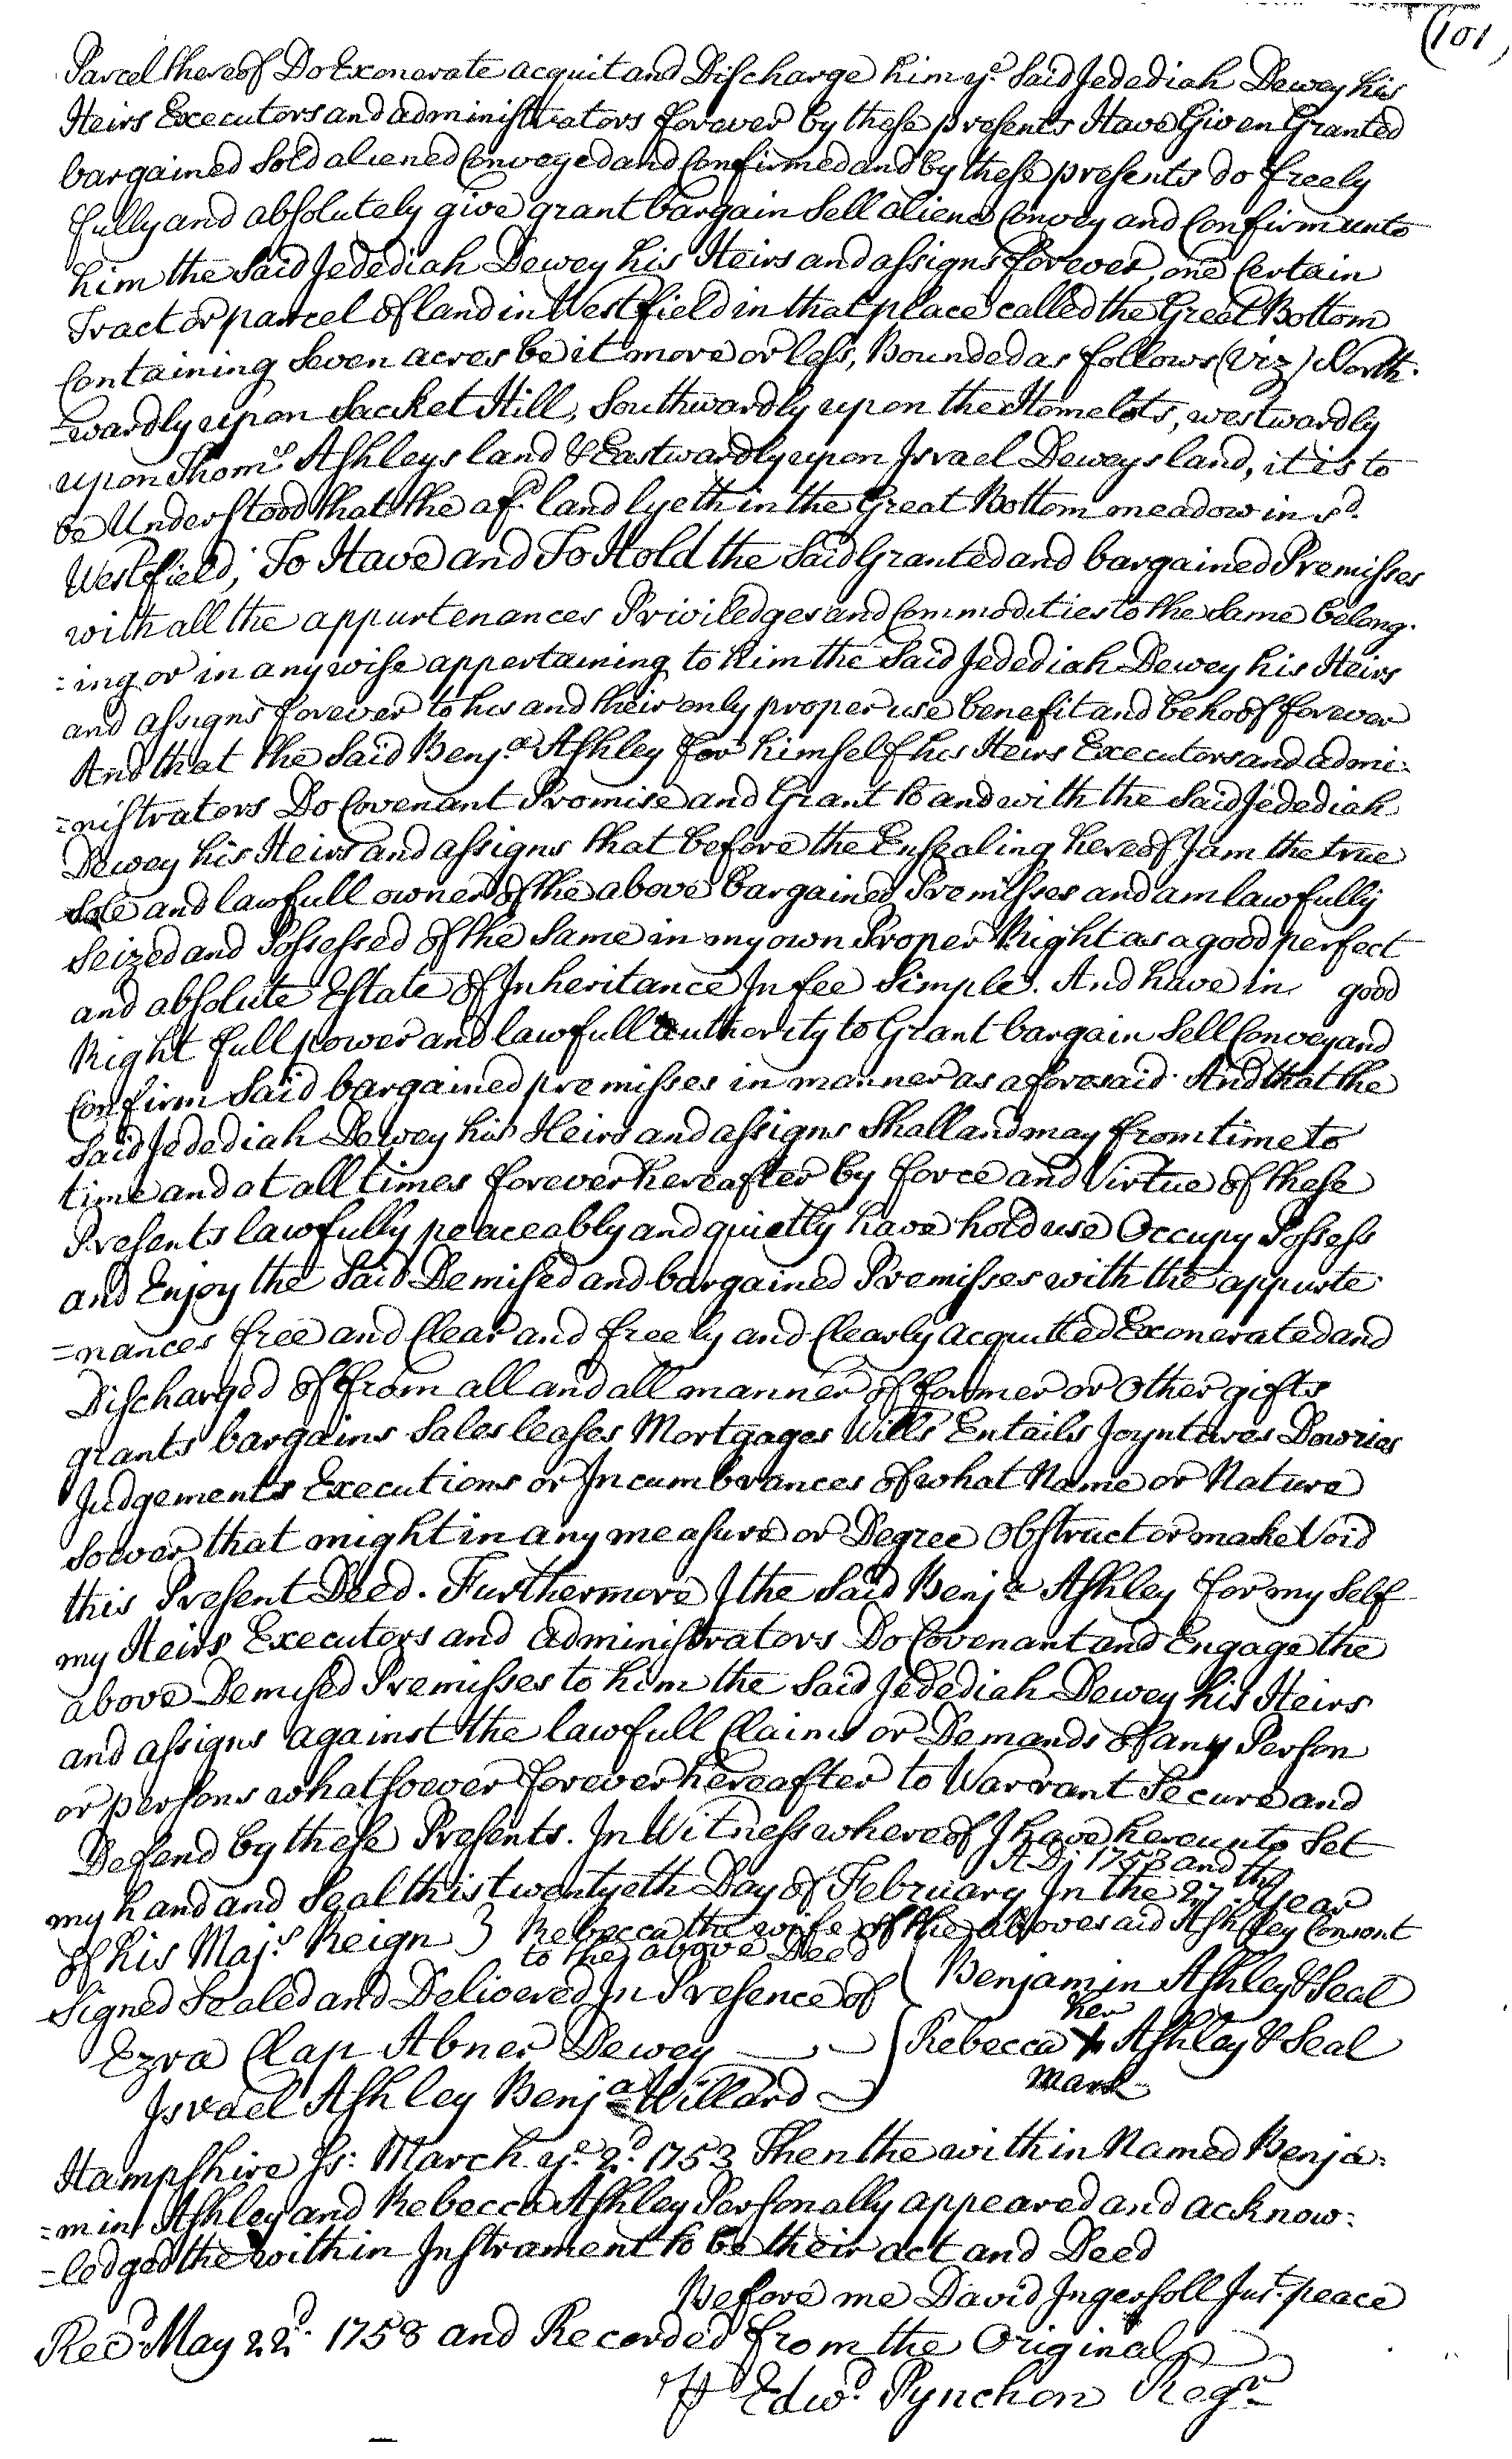 (101)
Parcel thereof Do Exonerate acquit and Discharge him ye Said Jedediah Dewey his
Heirs Executors and administrators forever by these presents Have Given Granted
bargained Sold aliened Conveyed and Confirmed and by these presents do freely
fully and absolutely give grant bargain Sell aliene Convey and Confirm unto
him the Said Jedediah Dewey his Heirs and assigns forever, one Certain
Tract or parcel of land in Westfield in that place called the Great Bottom
Containing Seven acres be it more or less, Bounded as follows (Viz) North-
=wardly upon Sacket Hill, Southwardly upon the Homelots, westwardly
upon Thoms Ashleys land & Eastwardly upon Israel Deweys land, it is to
be Understood that the afd land lyeth in the Great Bottom meadow in sd
Westfield; To Have and To Hold the Said Granted and bargained Premisses
with all the appurtenances Priviledges and Commodities to the Same belong-
=ing or in any wise appertaining to him the Said Jedediah Dewey his Heirs
and assigns forever to his and their only proper use benefit and behoof forever
And that the Said Benja Ashley for himself his Heirs Executors and admi-
=nistrators Do Covenant Promise and Grant to and with the Said Jedediah
Dewey his Heirs and assigns that before the Ensealing hereof I am the true
Sole and lawfull owner of the above bargained Premisses and am lawfully
Seized and Possessed of the Same in my own Proper Right as a good perfect
and absolute Estate of Inheritance In fee Simple. And have in good
Right full power and lawfull authority to Grant bargain Sell Convey and
Confirm Said bargained premisses in manner as aforesaid. And that the
Said Jedediah Dewey his Heirs and assigns Shall and may from time to
time and at all times forever hereafter by force and Virtue of these
Presents lawfully peaceably and quietly have hold use Occupy Possess
and Enjoy the Said Demised and bargained Premisses with the appurte-
=nances free and Clear and freely and Clearly acquitted Exonerated and
Discharged of from all and all manner of former or Other gifts
grants bargains Sales leases Mortgages Wills Entails Joyntures Dowries
Judgements Executions or Incumbrances of what Name or Nature
Soever that might in any measure or Degree Obstruct or make Void
this Present Deed. Furthermore I the Said Benja Ashley for my Self
my Heirs Executors and administrators Do Covenant and Engage the
above Demised Premisses to him the Said Jedediah Dewey his Heirs
and assigns against the lawfull Claims or Demands of any Person
or persons whatsoever forever hereafter to Warrant Secure and
Defend by these Presents. In Witness whereof I have hereunto Set
A D: 1753 and the
my hand and Seal this twentyeth Day of February In the 27th year
of his Majs Reign } Rebecca the wife of the abovesaid Ashley Consent
to the above Deed
Signed Sealed and Delivered In Presence of ( Benjamin Ashley & Seal
Ezra Clap Abner Dewey } Rebecca her X mark Ashley & Seal
Israel Ashley Benja Willard
Hampshire Ss: March ye 2d 1753 Then the within Named Benja-
=min Ashley and Rebecca Ashley Personally appeared and acknow-
=ledged the within Instrament to be their act and Deed
Before me David Ingersoll Just peace
Recd May 22d 1758 and Recorded from the Original
P Edwd Pynchon Regr